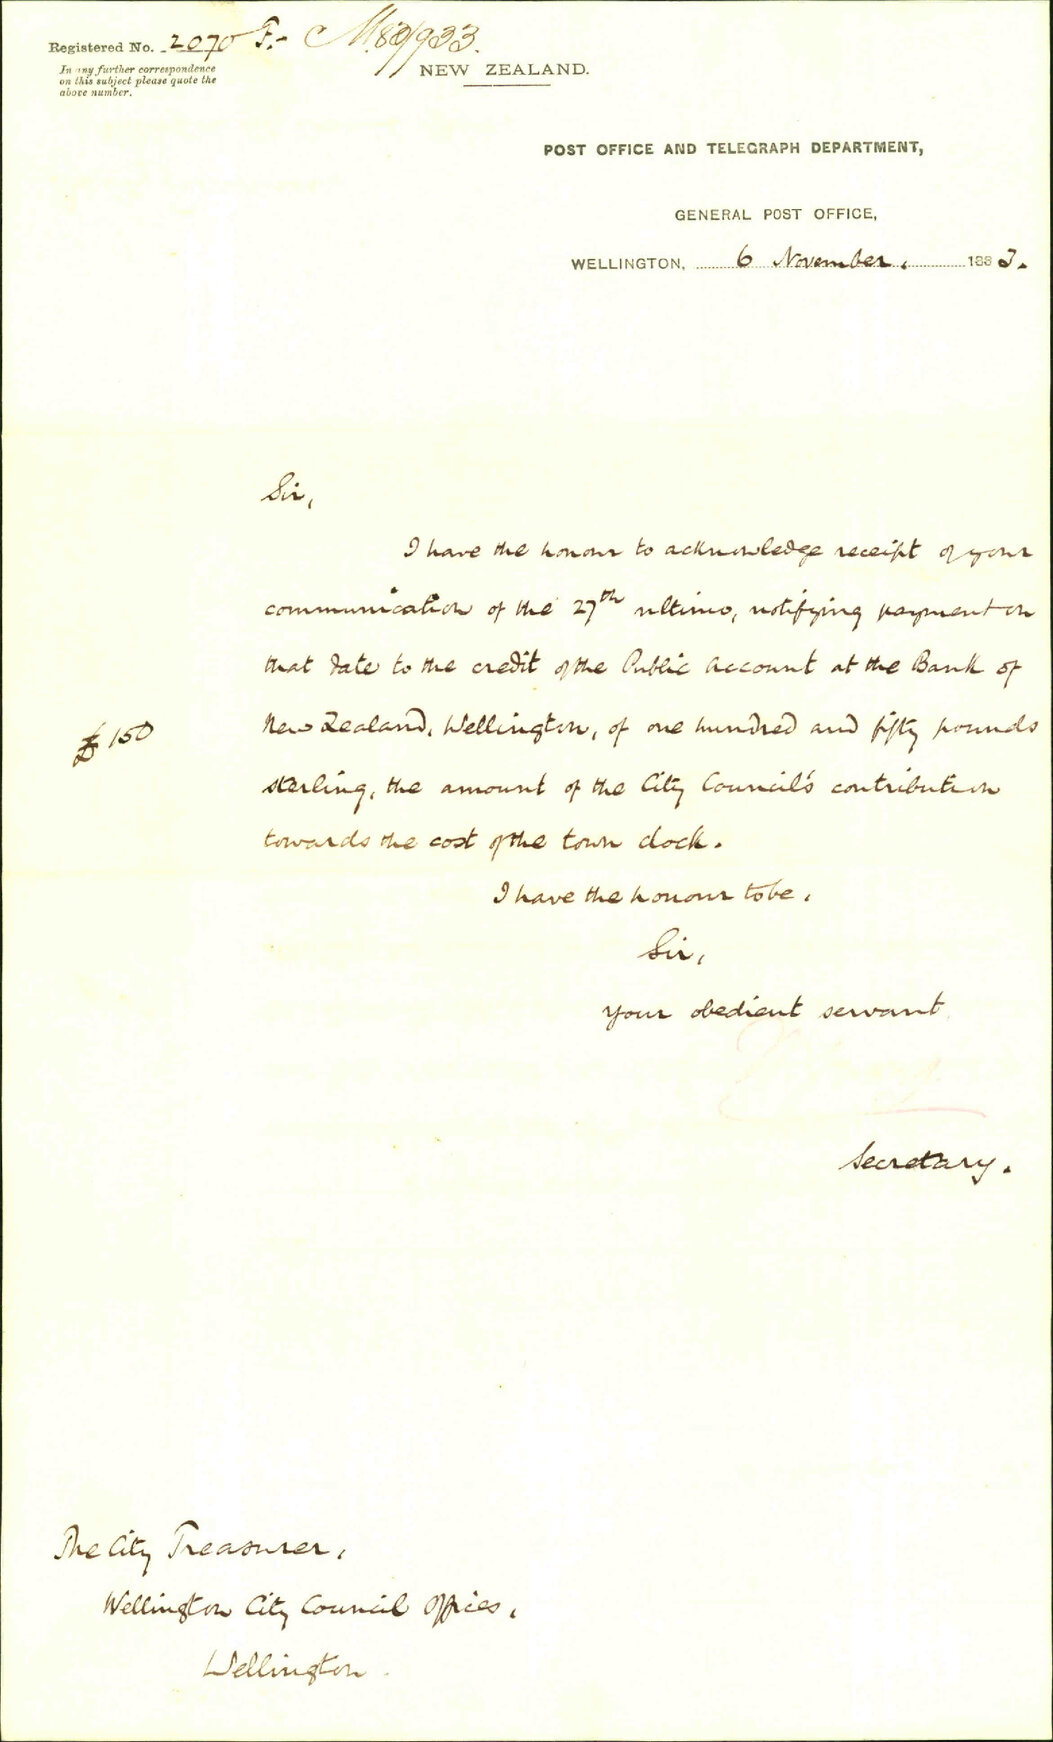 Registered No. 2070 F.- M83/933.
In any further correspondence
on this subject please quote the
above number.
NEW ZEALAND.
POST OFFICE AND TELEGRAPH DEPARTMENT,
GENERAL POST OFFICE,
WELLINGTON, 6 November, 1883.
Sir,
I have the honour to acknowledge receipt of your
communication of the 27th ultimo, notifying payment on
that date to the credit of the Public Account at the Bank of
New Zealand, Wellington, of one hundred and fifty pounds
£150
sterling, the amount of the City Council's contribution
towards the cost of the town clock.
I have the honour to be,
Sir,
Your obedient servant
Secretary.
The City Treasurer,
Wellington City Council Offices,
Wellington.